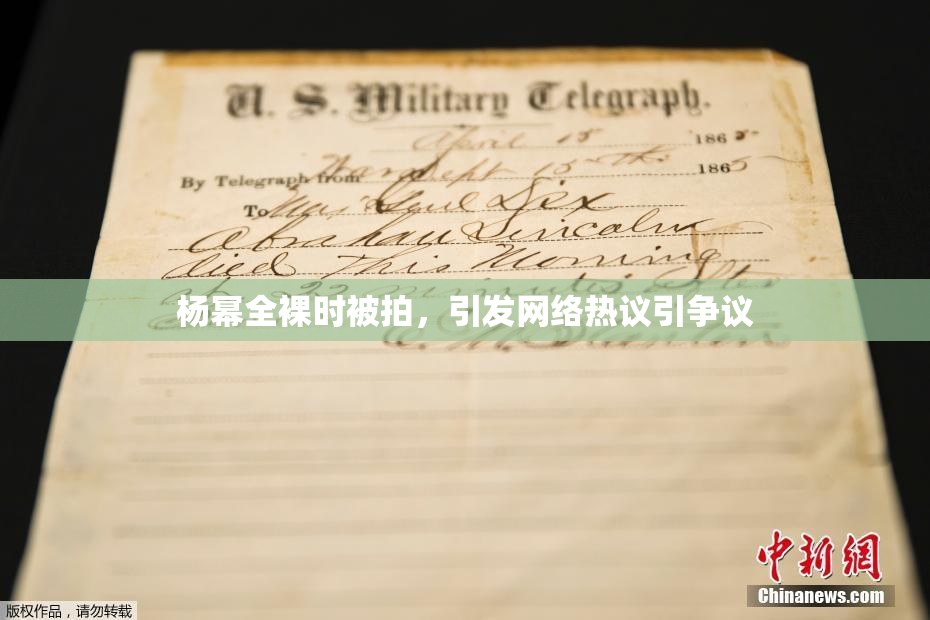 U. S. Military Telegraph.
April 15 1865
By Telegraph from War Dept 15th 1865
To Maj Genl Dix
Abraham Lincoln
died this Morning
at 22 minutes after
杨幂全裸时被拍，引发网络热议引争议
E. M. Stanton
中新网
Chinanews.com
版权作品，请勿转载